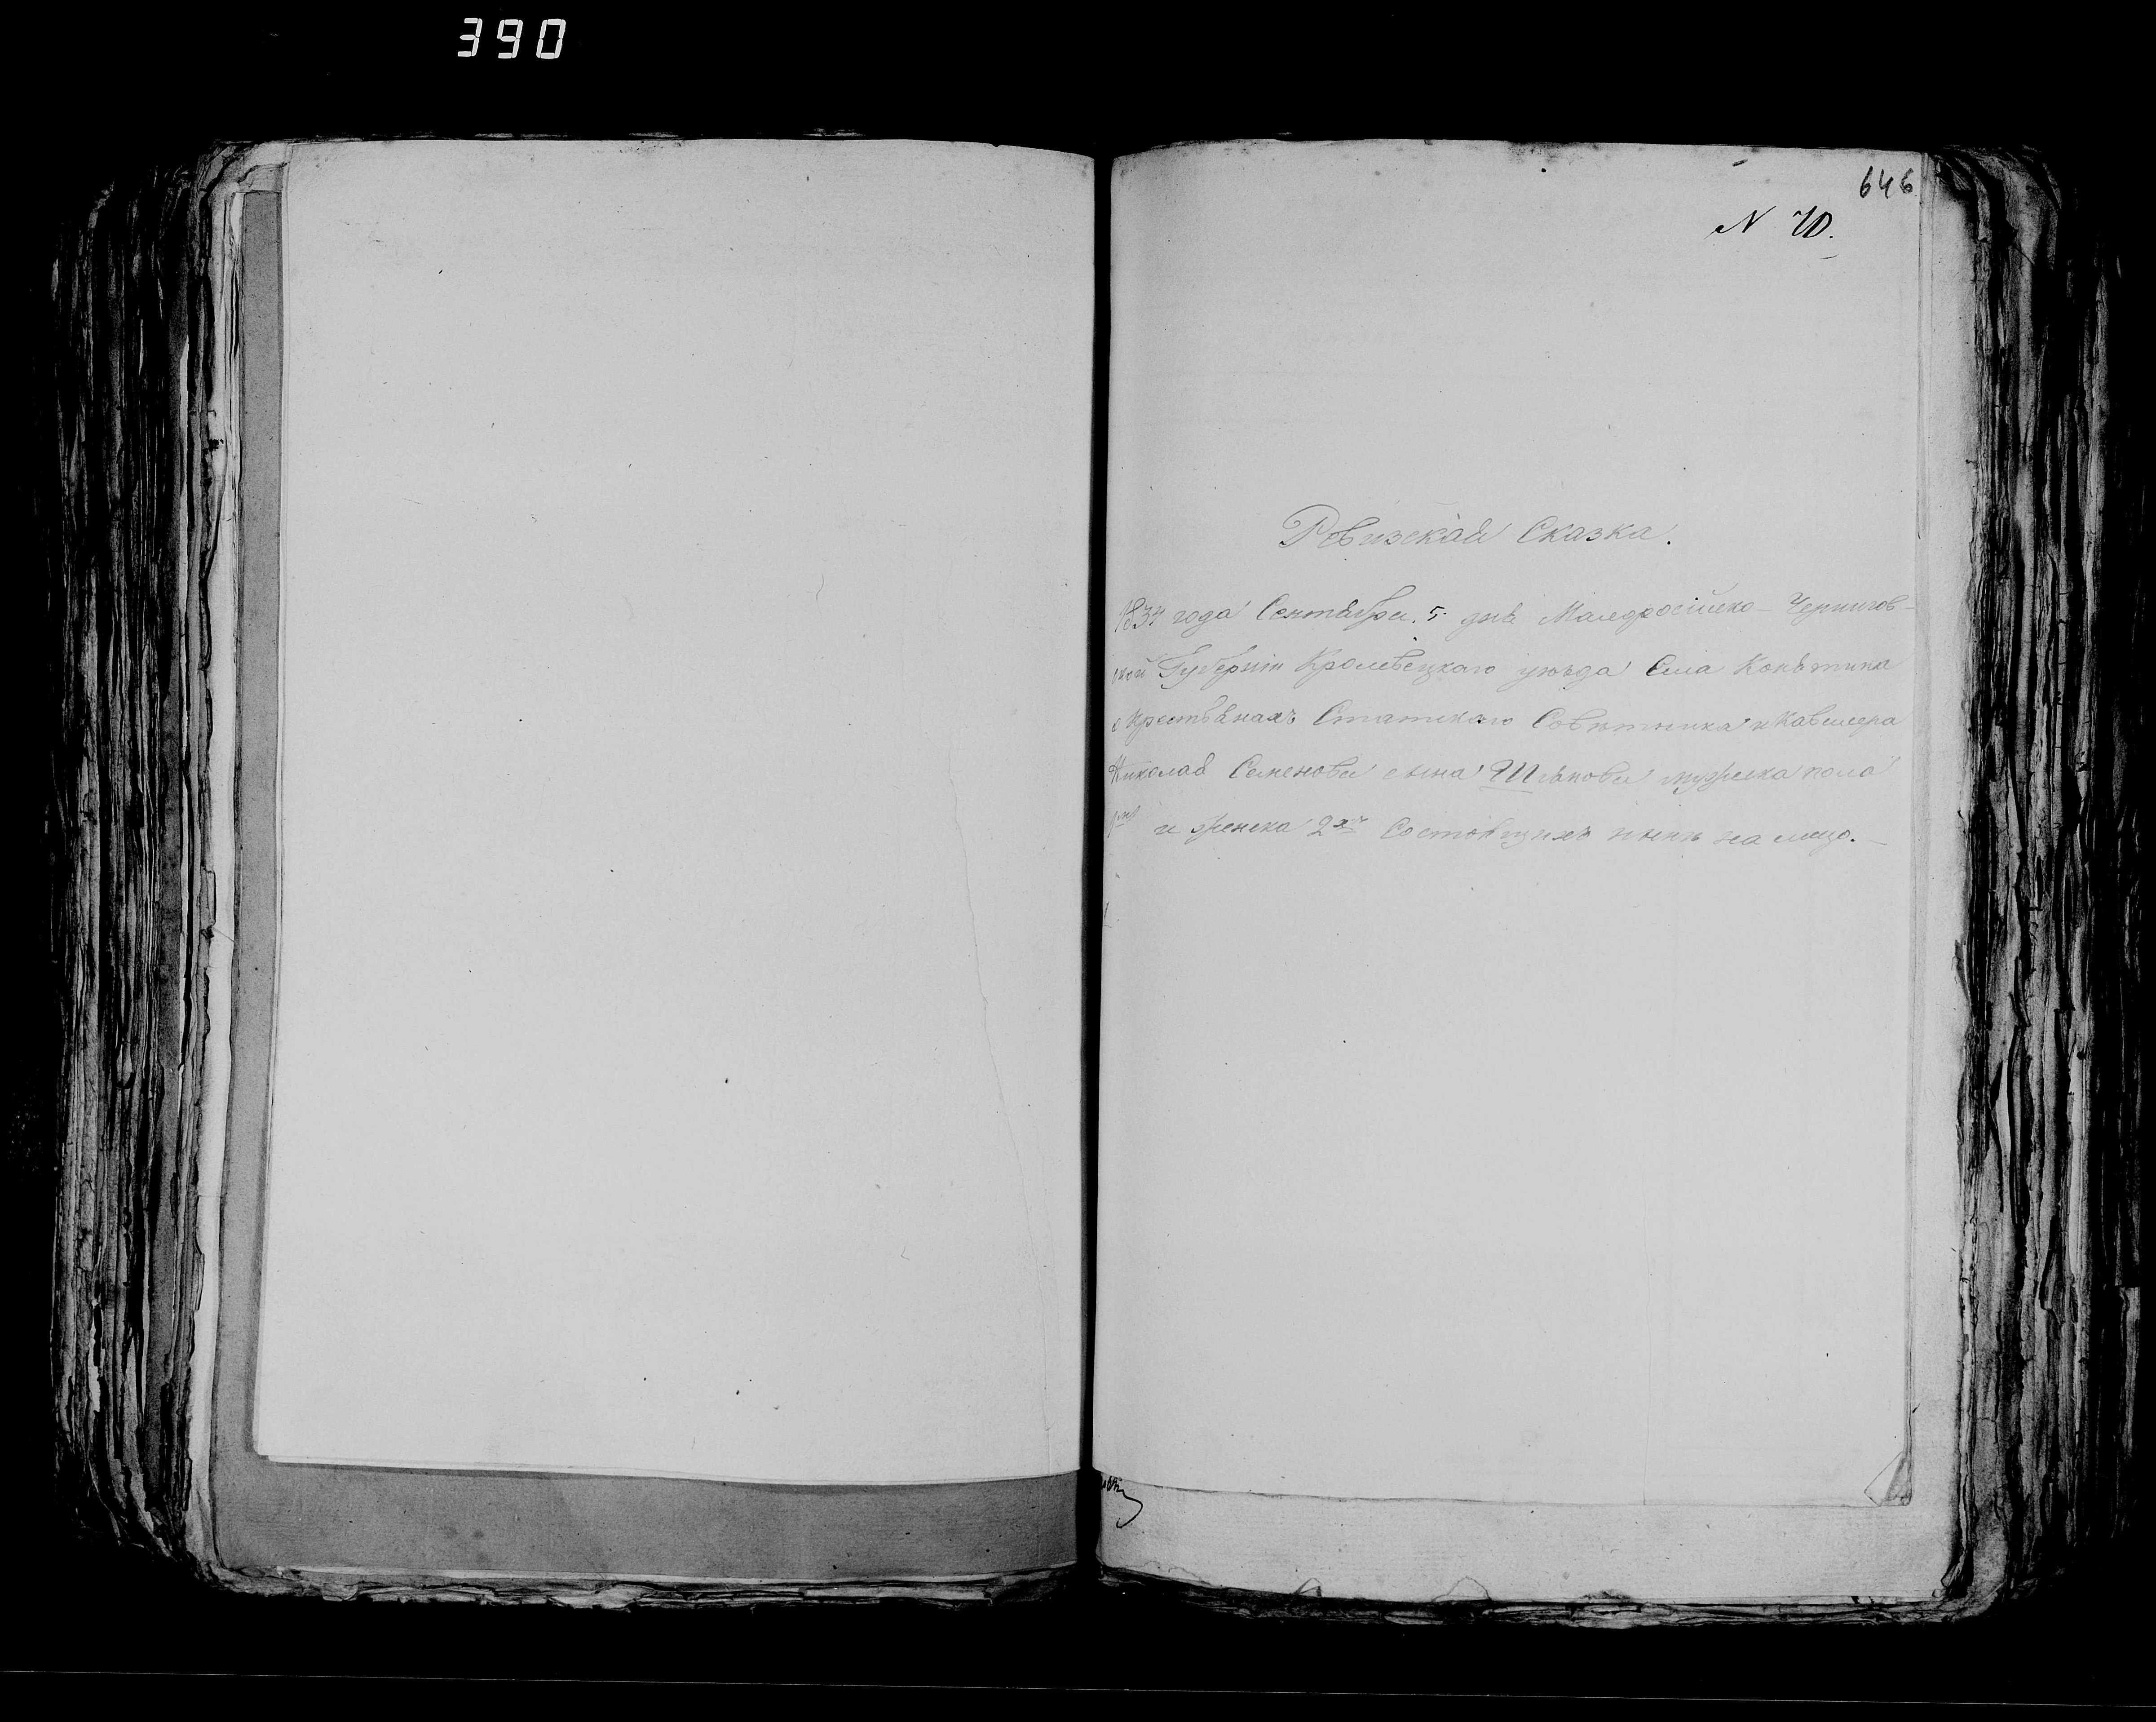 390
646
N 70.
Ревизская Сказка.
1834 года Сентября. 5. дня Малороссійско-Чернигов-
ской Губерніи Кролевецкаго уезда Села Конятина
о Крестьянахъ Статскаго Советника и Кавалера
Николая Семенова сына мужеска пола
и женска 2хъ Состоящихъ ныне на лицо.